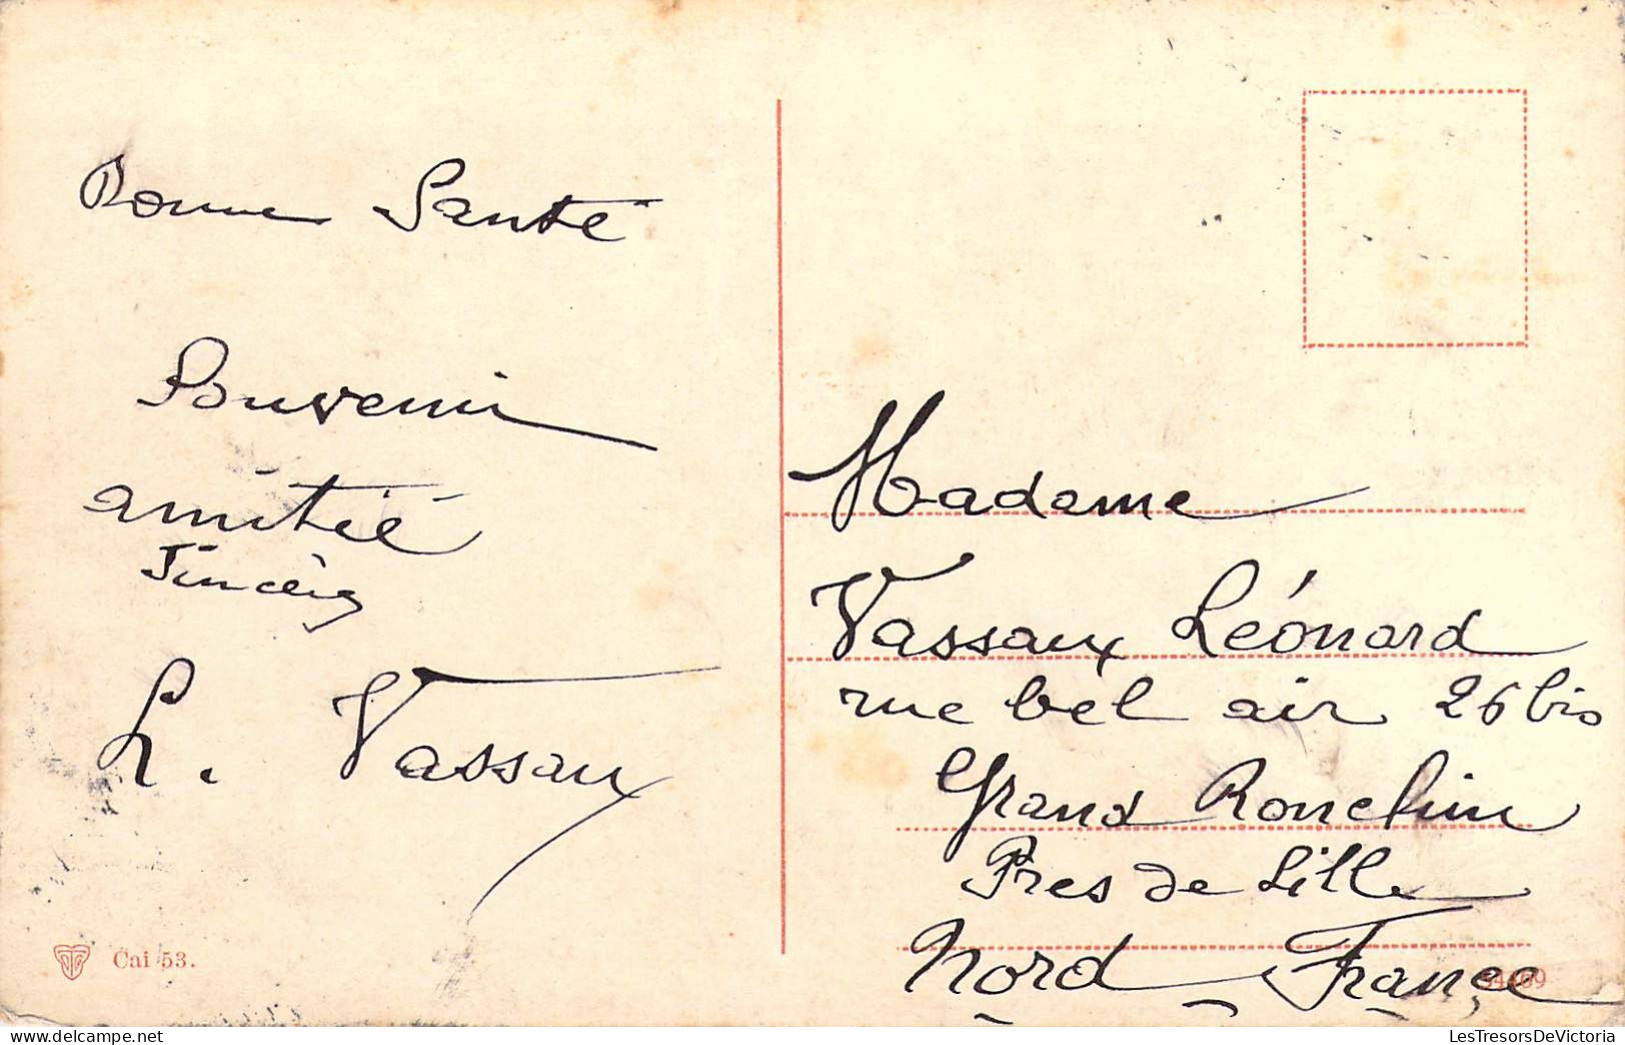 Bonne Santé
Souvenir
amitié
Sincèrs
L. Vassaux
Cai 53.
Madame
Vassaux Léonard
rue bel air 26 bis
Grand Ronchin
Pres de Lille
Nord France
LesTresorsDeVictoria